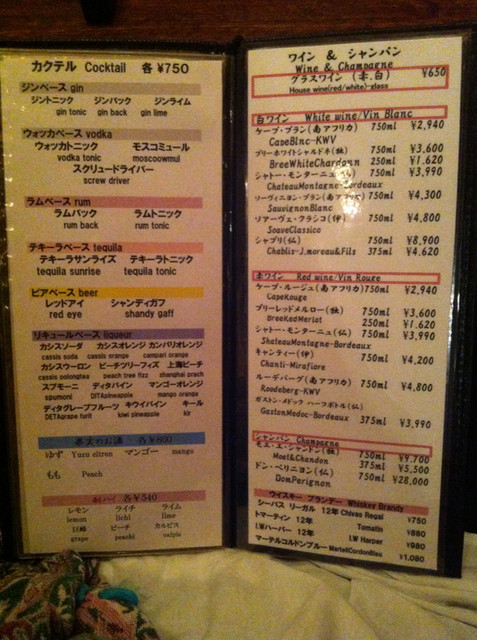 カクテル Cocktail 各 ¥750
ジンベース gin
ジントニック ジンバック ジンライム
gin tonic gin back gin lime
ウォッカベース vodka
ウォッカトニック モスコミュール
vodka tonic moscowmul
スクリュードライバー
screw driver
ラムベース rum
ラムバック ラムトニック
rum back rum tonic
テキーラベース tequila
テキーラサンライズ テキーラトニック
tequila sunrise tequila tonic
ビアベース beer
レッドアイ シャンディガフ
red eye shandy gaff
リキュールベース liqueur
カシスソーダ カシスオレンジ カンパリオレンジ
cassis soda cassis orange campari orange
カシスウーロン ピーチツリーフィズ 上海ピーチ
cassis oolongtea peach tree fizz shanghai prach
スプモーニ ディタパイン マンゴーオレンジ
spumoni DITApineapple mango orange
ディタグレープフルーツ キウイパイン キール
DETAgrape furit kiwi pineapple kir
果実のお酒 各¥800
ゆず Yuzu citron マンゴー mango
もも Peach
酎ハイ 各¥540
レモン ライチ ライム
lemon lichi lime
巨峰 ピーチ カルピス
grape peachi calpis
ワイン & シャンパン
Wine & Champagne
グラスワイン (赤.白) ¥650
House wine(red/white)-glass
白ワイン White wine/Vin Blanc
ケープ・ブラン(南アフリカ) 750ml ¥2,940
CapeBlnc-KWV
ブリーホワイトシャルドネ(独) 750ml ¥3,600
BreeWhiteChardonn 250ml ¥1,620
シャトー・モンターニュ(仏) 750ml ¥3,990
ChateauMontagne-Bordeaux
ソーヴィニヨン・ブラン(南アフリカ) 750ml ¥4,300
SauvignonBlanc
ソアーヴェ・クラシコ(伊) 750ml ¥4,800
SoaveClassico
シャブリ(仏) 750ml ¥8,900
Chablis-J.moreau&Fils 375ml ¥4,620
赤ワイン Red wine/Vin Rouge
ケープ・ルージュ(南アフリカ)750ml ¥2,940
CapeRouge
ブリーレッドメルロー(独) 750ml ¥3,600
BreeRedMerlot 250ml ¥1,620
シャトー・モンターニュ(仏) 750ml ¥3,990
ShateauMontagne-Bordeaux
キャンティー(伊) 750ml ¥4,200
Chanti-Mirafiore
ルーデバーグ(南アフリカ) 750ml ¥4,800
Roodeberg-KWV
ガストン・メドック ハーフボトル(仏)
GastonMedoc-Bordeaux 375ml ¥3,990
シャンパン Champagne
モエ・エ・シャンドン(仏) 750ml ¥9,700
Moet&Chandon 375ml ¥5,500
ドン・ペリニヨン(仏) 750ml ¥28,000
DomPerignon
ウイスキー ブランデー Whiskey Brandy
シーバス リーガル 12年 Chivas Regal ¥750
トマーティン 12年 Tomatin ¥880
I.Wハーパー 12年 I.W Harper ¥980
マーテルコルドンブルー MartellCordonBleu ¥1,080